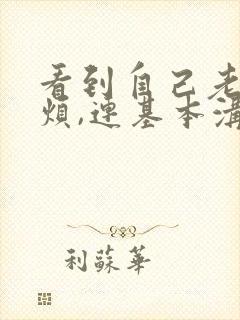 看到自己老
煩,連基本溝
利蘇華